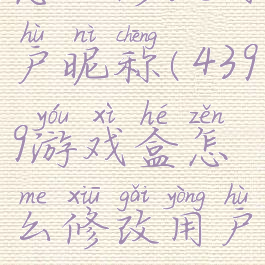 hù nì chēng
户昵称(439
yóu xì hé zěn
9游戏盒怎
me xiū gǎi yòng hù
么修改用户